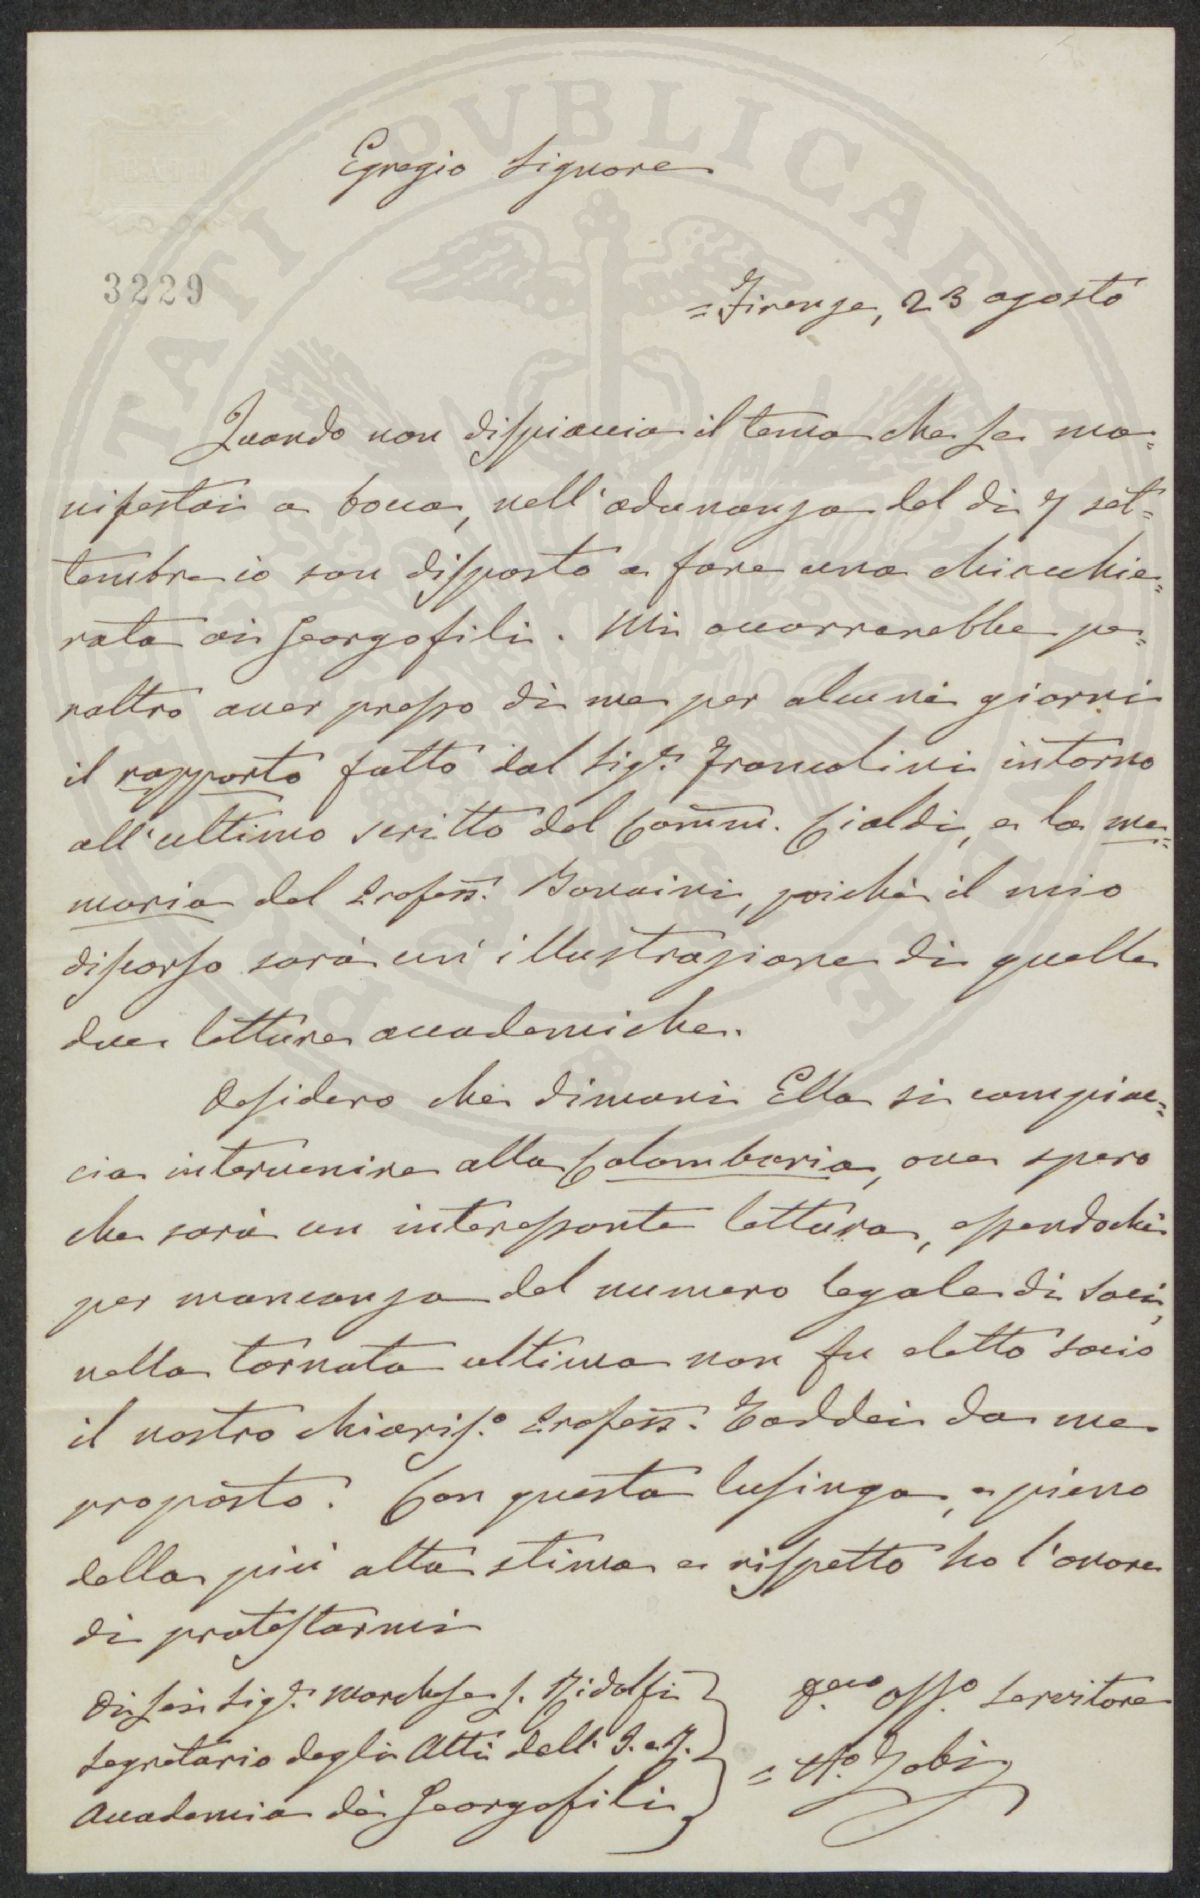 Egregio Signore
3229
= Firenze, 23 agosto
Quando non dispiaccia il tema che Le ma=
nifestai a bocca, nell'adunanza del dì 7 set=
tembre io son disposto a fare una chiacchie=
rata ai Georgofili. Mi occorrerebbe pe=
raltro aver presso di me per alcuni giorni
il rapporto fatto dal Sigr. Francolini intorno
all'ultimo scritto del Comm. Cialdi, e la me=
moria del Profess. Bonaini, poichè il mio
discorso sarà un'illustrazione di quelle
due letture accademiche.
Desidero che dimani Ella si compiac=
cia intervenire alla Colombaria, ove spero
che sarà un interessante lettura, essendochè
per mancanza del numero legale di Soci,
nella tornata ultima non fu eletto socio
il nostro chiaris.o Profess. Taddei da me
proposto. Con questa lusinga, e pieno
della più alta stima e rispetto ho l'onore
di protestarmi
Di Lei Sigr. Marchese L. Ridolfi
Segretario degli Atti dell'I. e R.
Accademia dei Georgofili
oss.o servitore
= A.o Zobi
PROSPERITATI PUBLICAE AUGENDAE